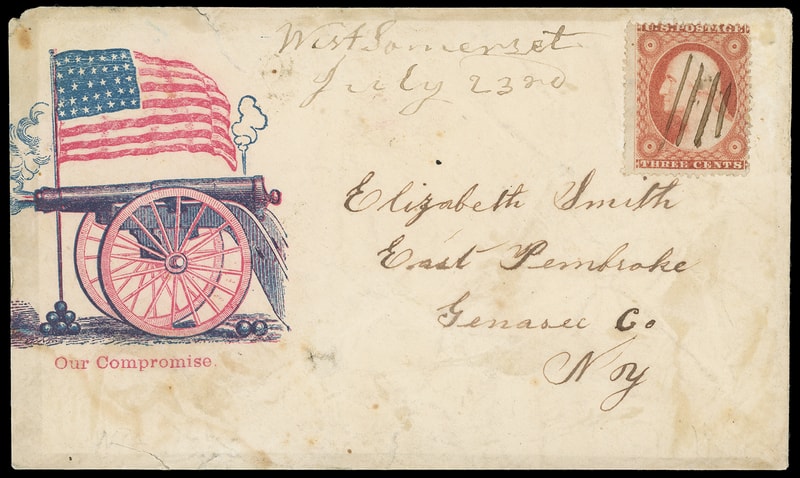 West Somerset
July 23rd
U.S. POSTAGE
THREE CENTS
Elizabeth Smith
East Pembroke
Genasee Co
Ny
Our Compromise.